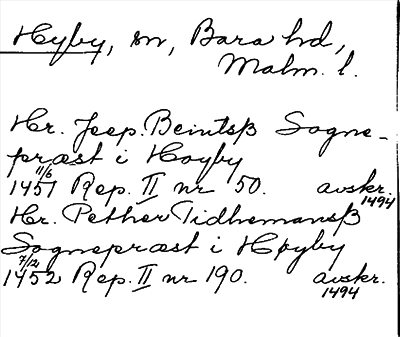 Hyby, sn, Bara hd,
Malm. l.
Hr. Jeep. Beintsß Sogne-
præst i Høyby
11/6
1451 Rep. II nr 50. avskr.
1494
Hr. Pether Tidhemansß
Sognepræst i Høyby
7/12
1452 Rep. II nr 190. avskr.
1494